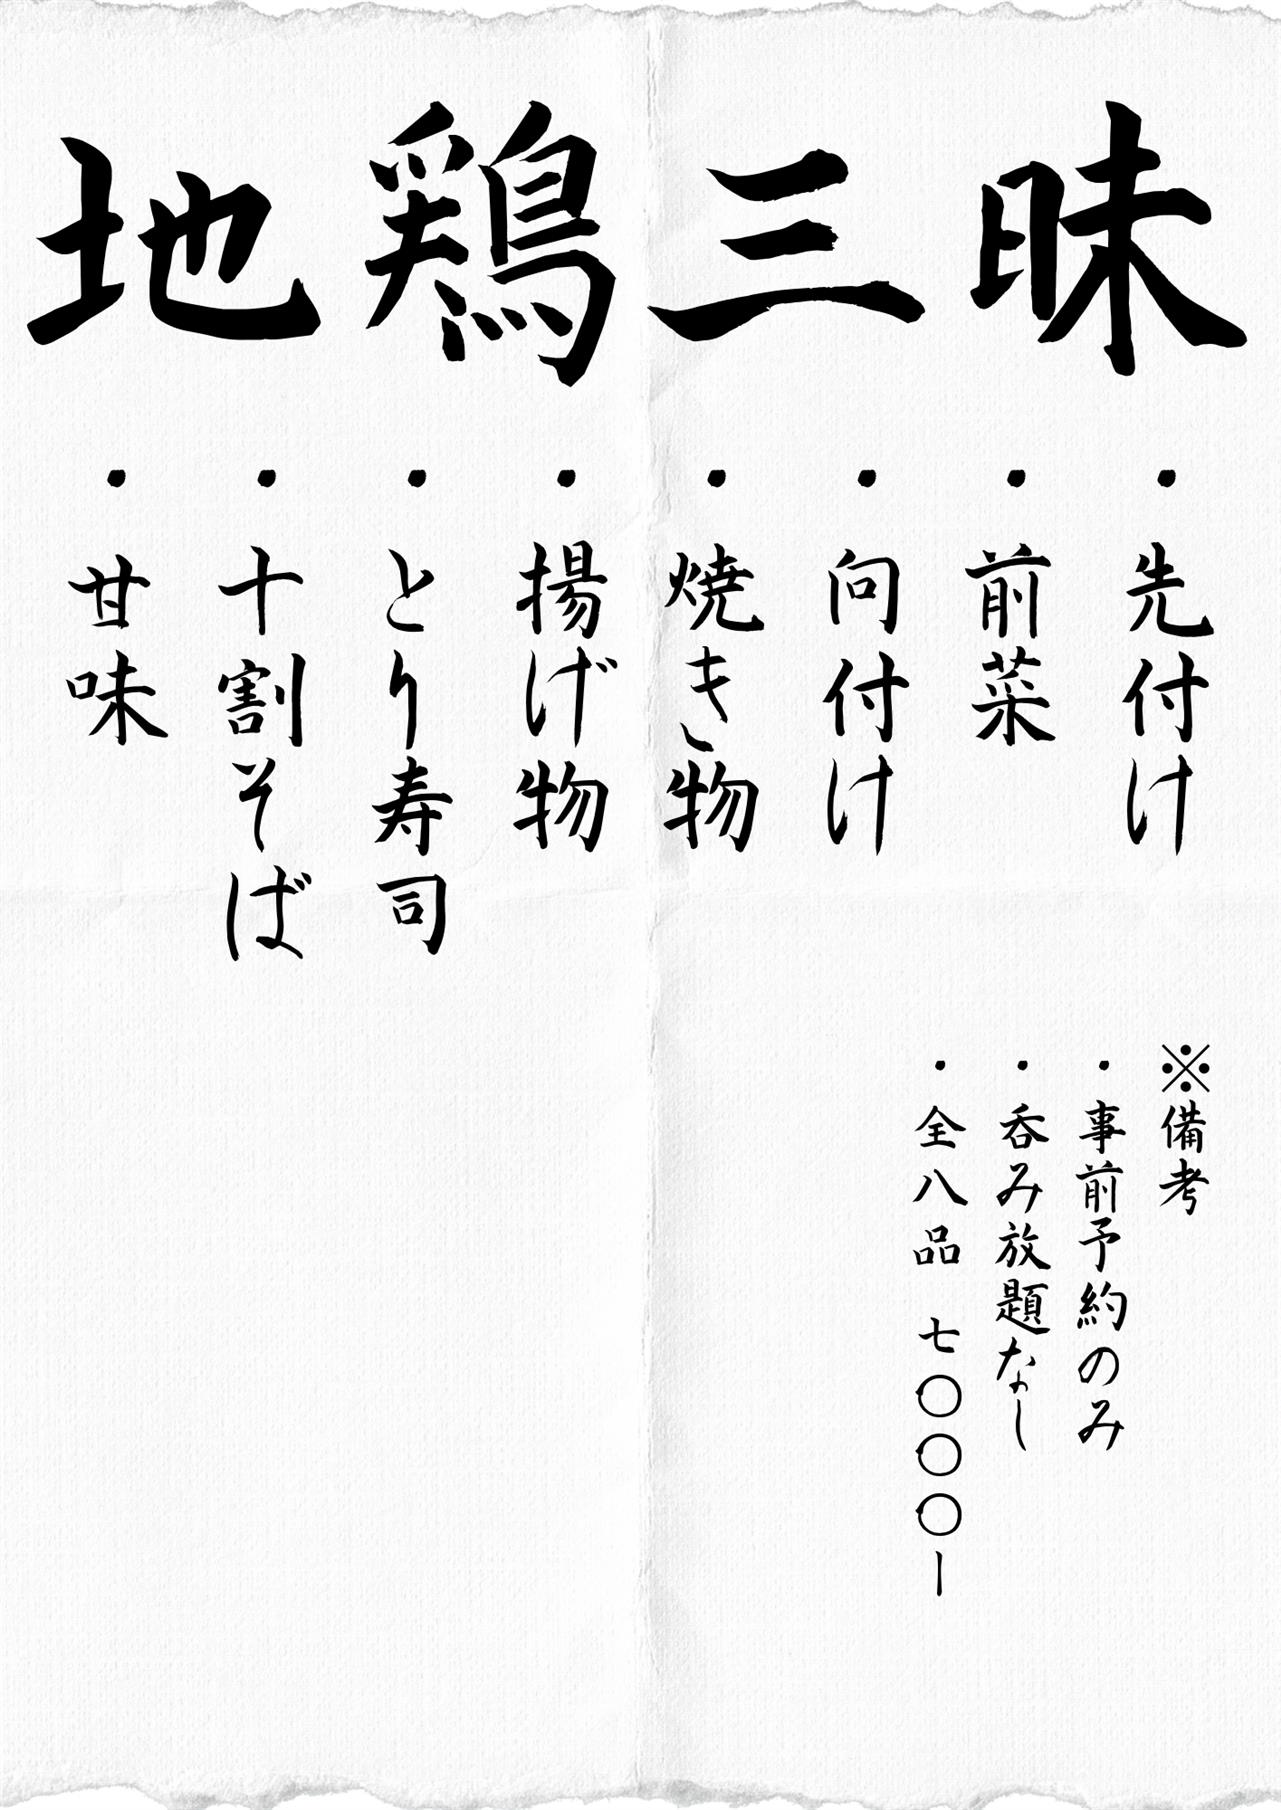 地鶏三昧
・先付け
・前菜
・向付け
・焼き物
・揚げ物
・とり寿司
・十割そば
・甘味
※備考
・事前予約のみ
・呑み放題なし
・全八品　七〇〇〇ー